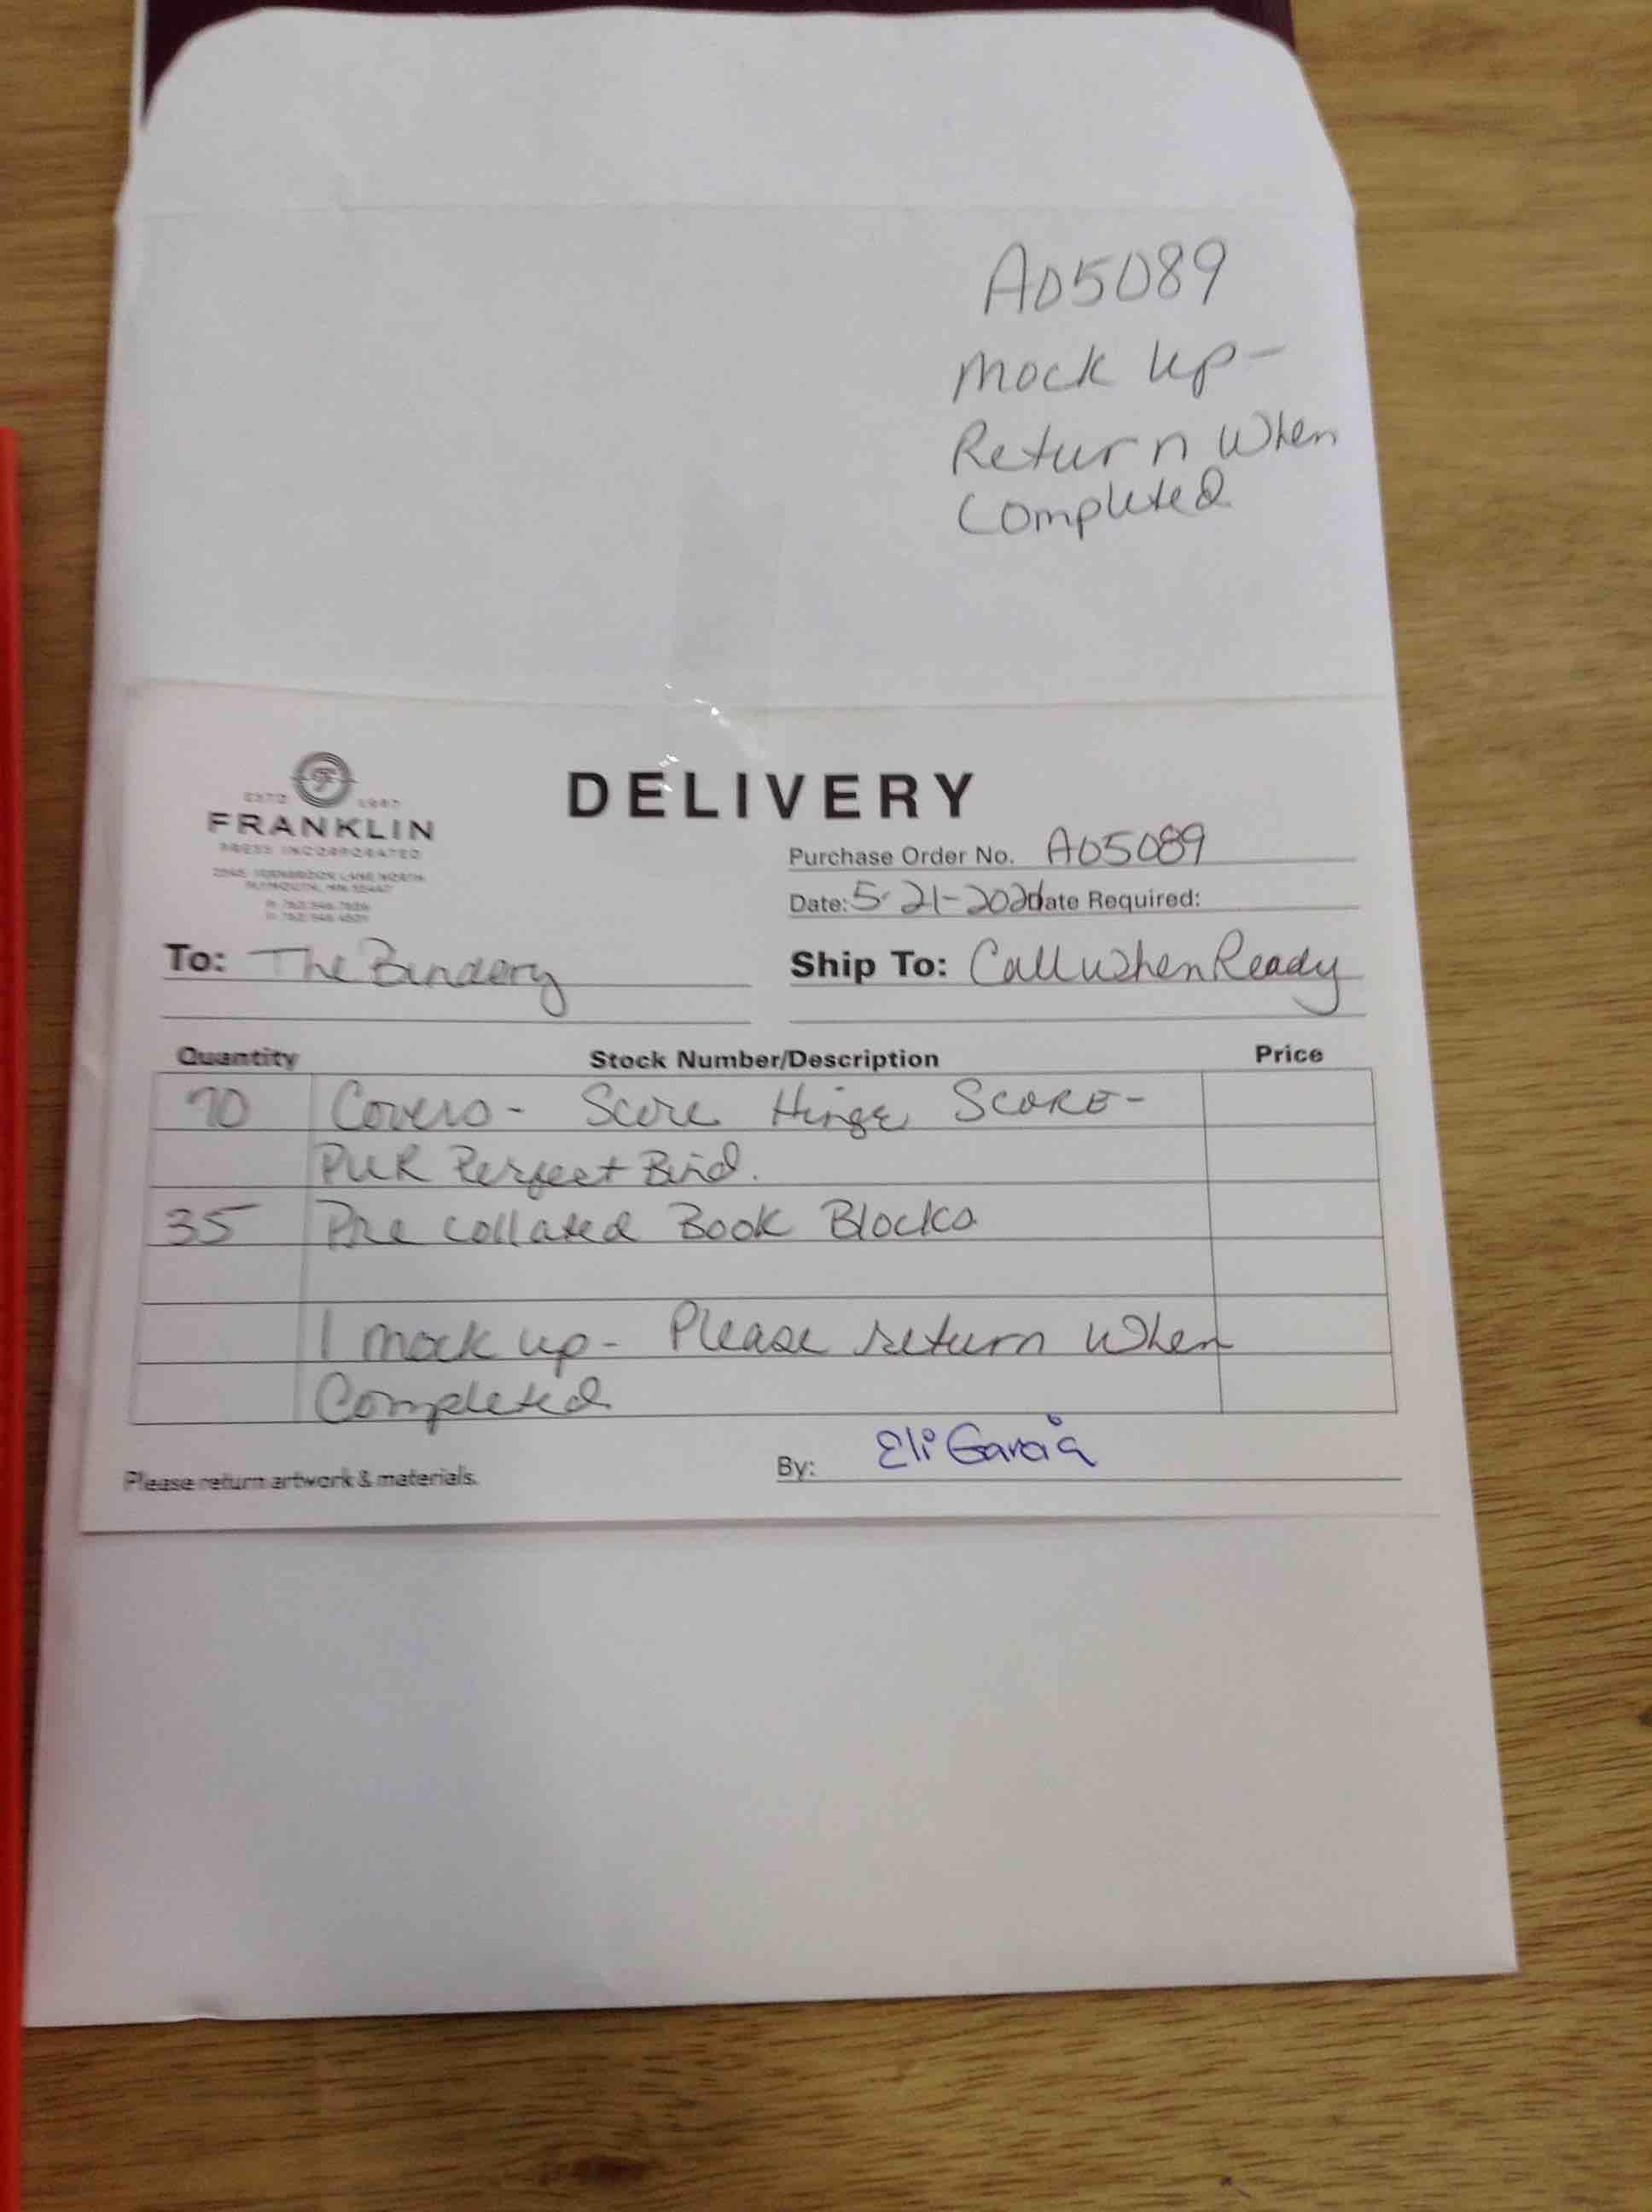 A05089
Mock up-
Return When
Completed
DELIVERY
ESTD 1947
FRANKLIN
PRESS INCORPORATED
LANE NORTH
PLYMOUTH, MN 55447
Purchase Order No. A05089
Date: 5-21- Date Required:
To: The Bindery
Ship To: Call When Ready
Quantity Stock Number/Description Price
70 Covers- Score Hinge SCORE-
PUR Perfect Bind.
35 Pre collated Book Blocks
1 mock up- Please return When
Completed
Please return artwork & materials.
By: Eli Garcia